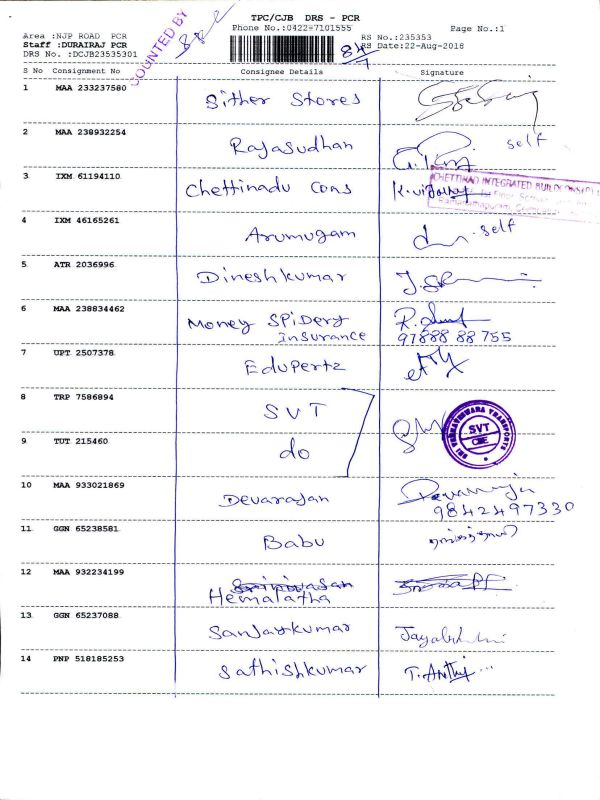 TPC/CJB DRS - PCR
Phone No.:0422-7101555
Page No.:1
Area :NJP ROAD PCR
RS No.:235353
Staff :DURAIRAJ PCR
RS Date:22-Aug-2018
DRS No. :DCJB23535301
COUNTED BY
S No Consignment No Consignee Details Signature
1 MAA 233237580 Sither Stores
2 MAA 238932254 Rajasudhan self
3 IXM 61194110 Chettinadu Cons
CHETTINAD INTEGRATED
4 IXM 46165261 Arumugam self
5 ATR 2036996 Dineshkumar
6 MAA 238834462 Money Spidery
Insurance 97888 88 755
7 UPT 2507378 Edupertz
8 TRP 7586894 SVT
SVT
9 TUT 215460 do
10 MAA 933021869 Devarajan
9842497330
11 GGN 65238581 Babu
12 MAA 932234199 Srinivasan
Hemalatha
13 GGN 65237088 Sanjaykumar
14 PNP 518185253 Sathishkumar